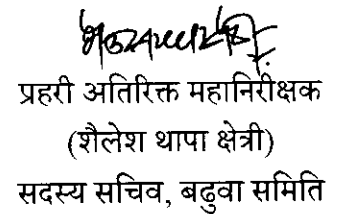 प्रहरी अतिरिक्त महानिरीक्षक
(शैलेश थापा क्षेत्री)
सदस्य सचिव, बढुवा समिति